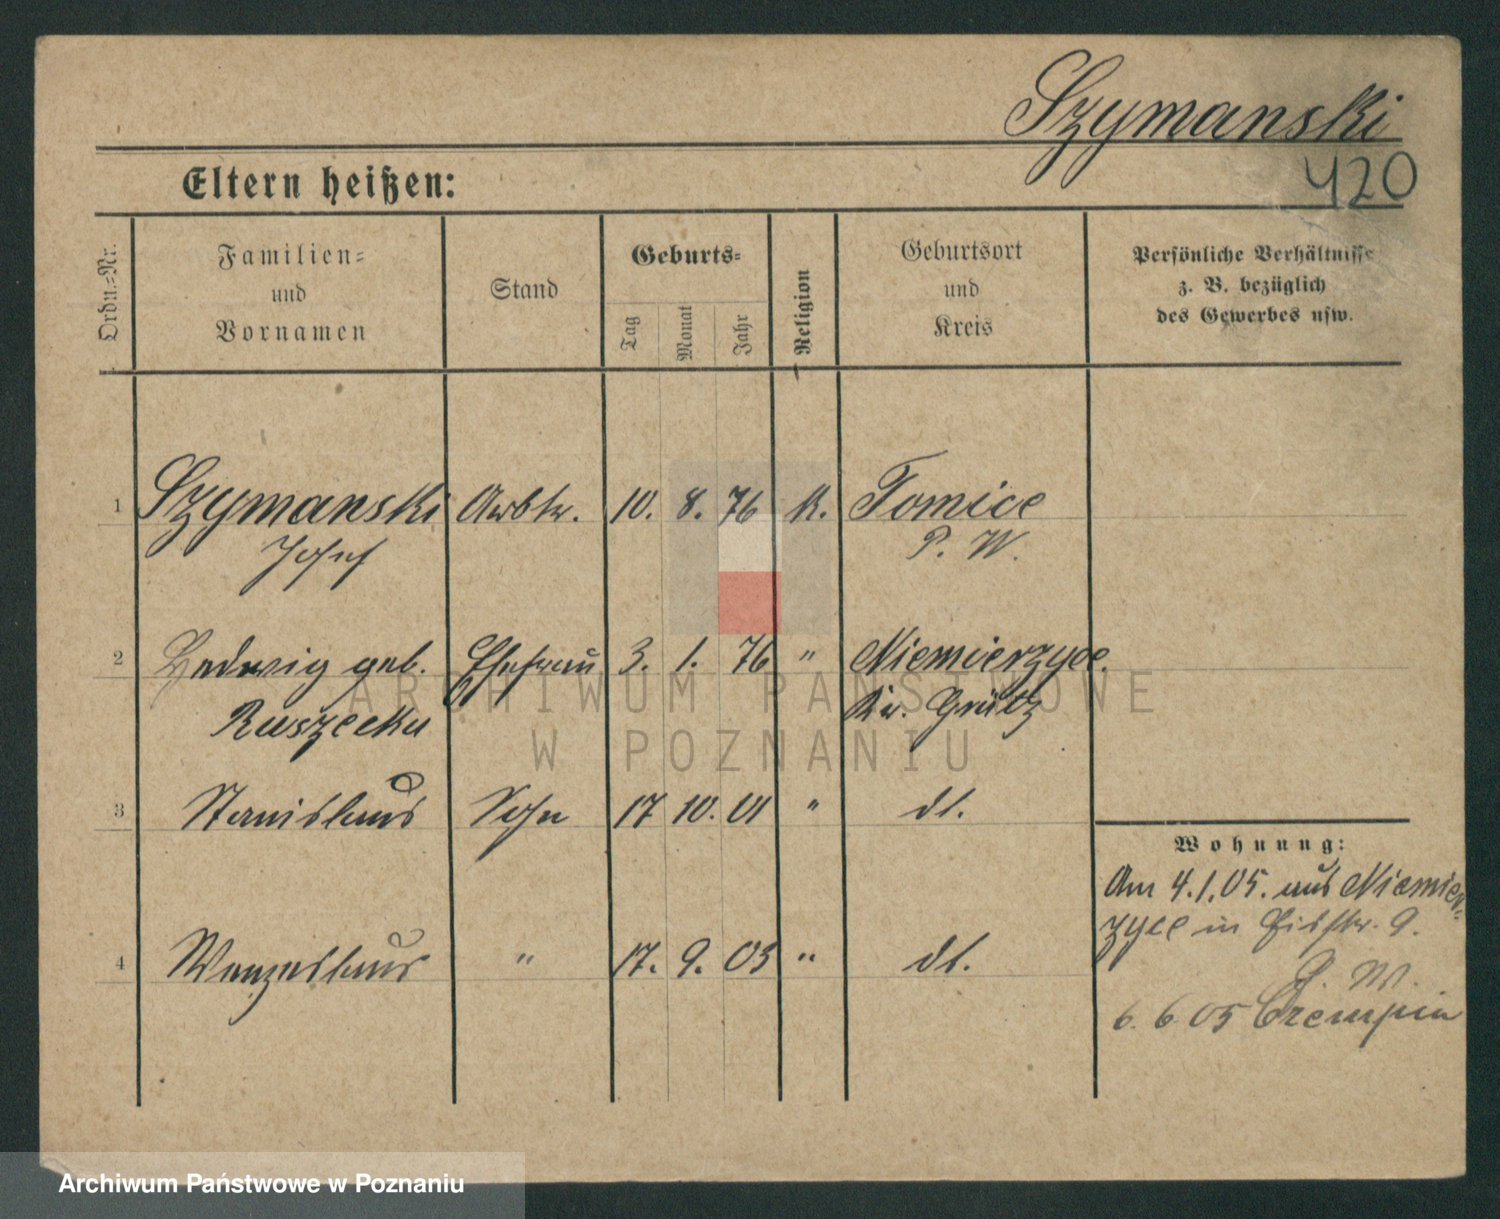 Szymanski
420
Eltern heißen:
Ordn.-Nr.
Familien-
und
Vornamen
Stand
Geburts-
Tag
Monat
Jahr
Religion
Geburtsort
und
Kreis
Persönliche Verhältnisse
z. B. bezüglich
des Gewerbes usw.
1 Szymanski Arbtr. 10. 8. 76 K. Tomice
Josef P. W.
2 Hedwig geb. Ehefrau 3. 1. 76 " Niemierzyce.
Ruszecka Kr. Grätz
3 Stanislaus Sohn 17 10. 01 " dt.
Wohnung:
Am 4.1.05. aus Niemier-
zyce in
4 Wenzeslaus " 17. 9. 03 " dt.
P. W.
6. 6 05 Czempin
ARCHIWUM PAŃSTWOWE
W POZNANIU
Archiwum Państwowe w Poznaniu